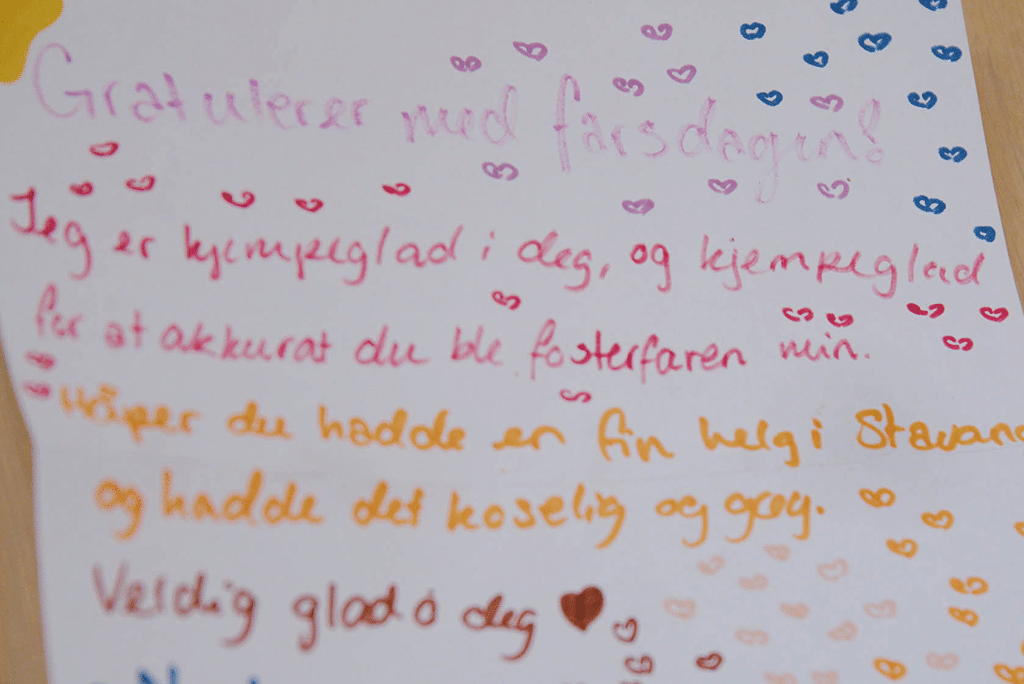 Gratulerer med farsdagen!
Jeg er kjempeglad i deg, og kjempeglad
for at akkurat du ble fosterfaren min.
Håper du hadde en fin helg i Stavan
og hadde det koselig og gøy.
Veldig glad i deg